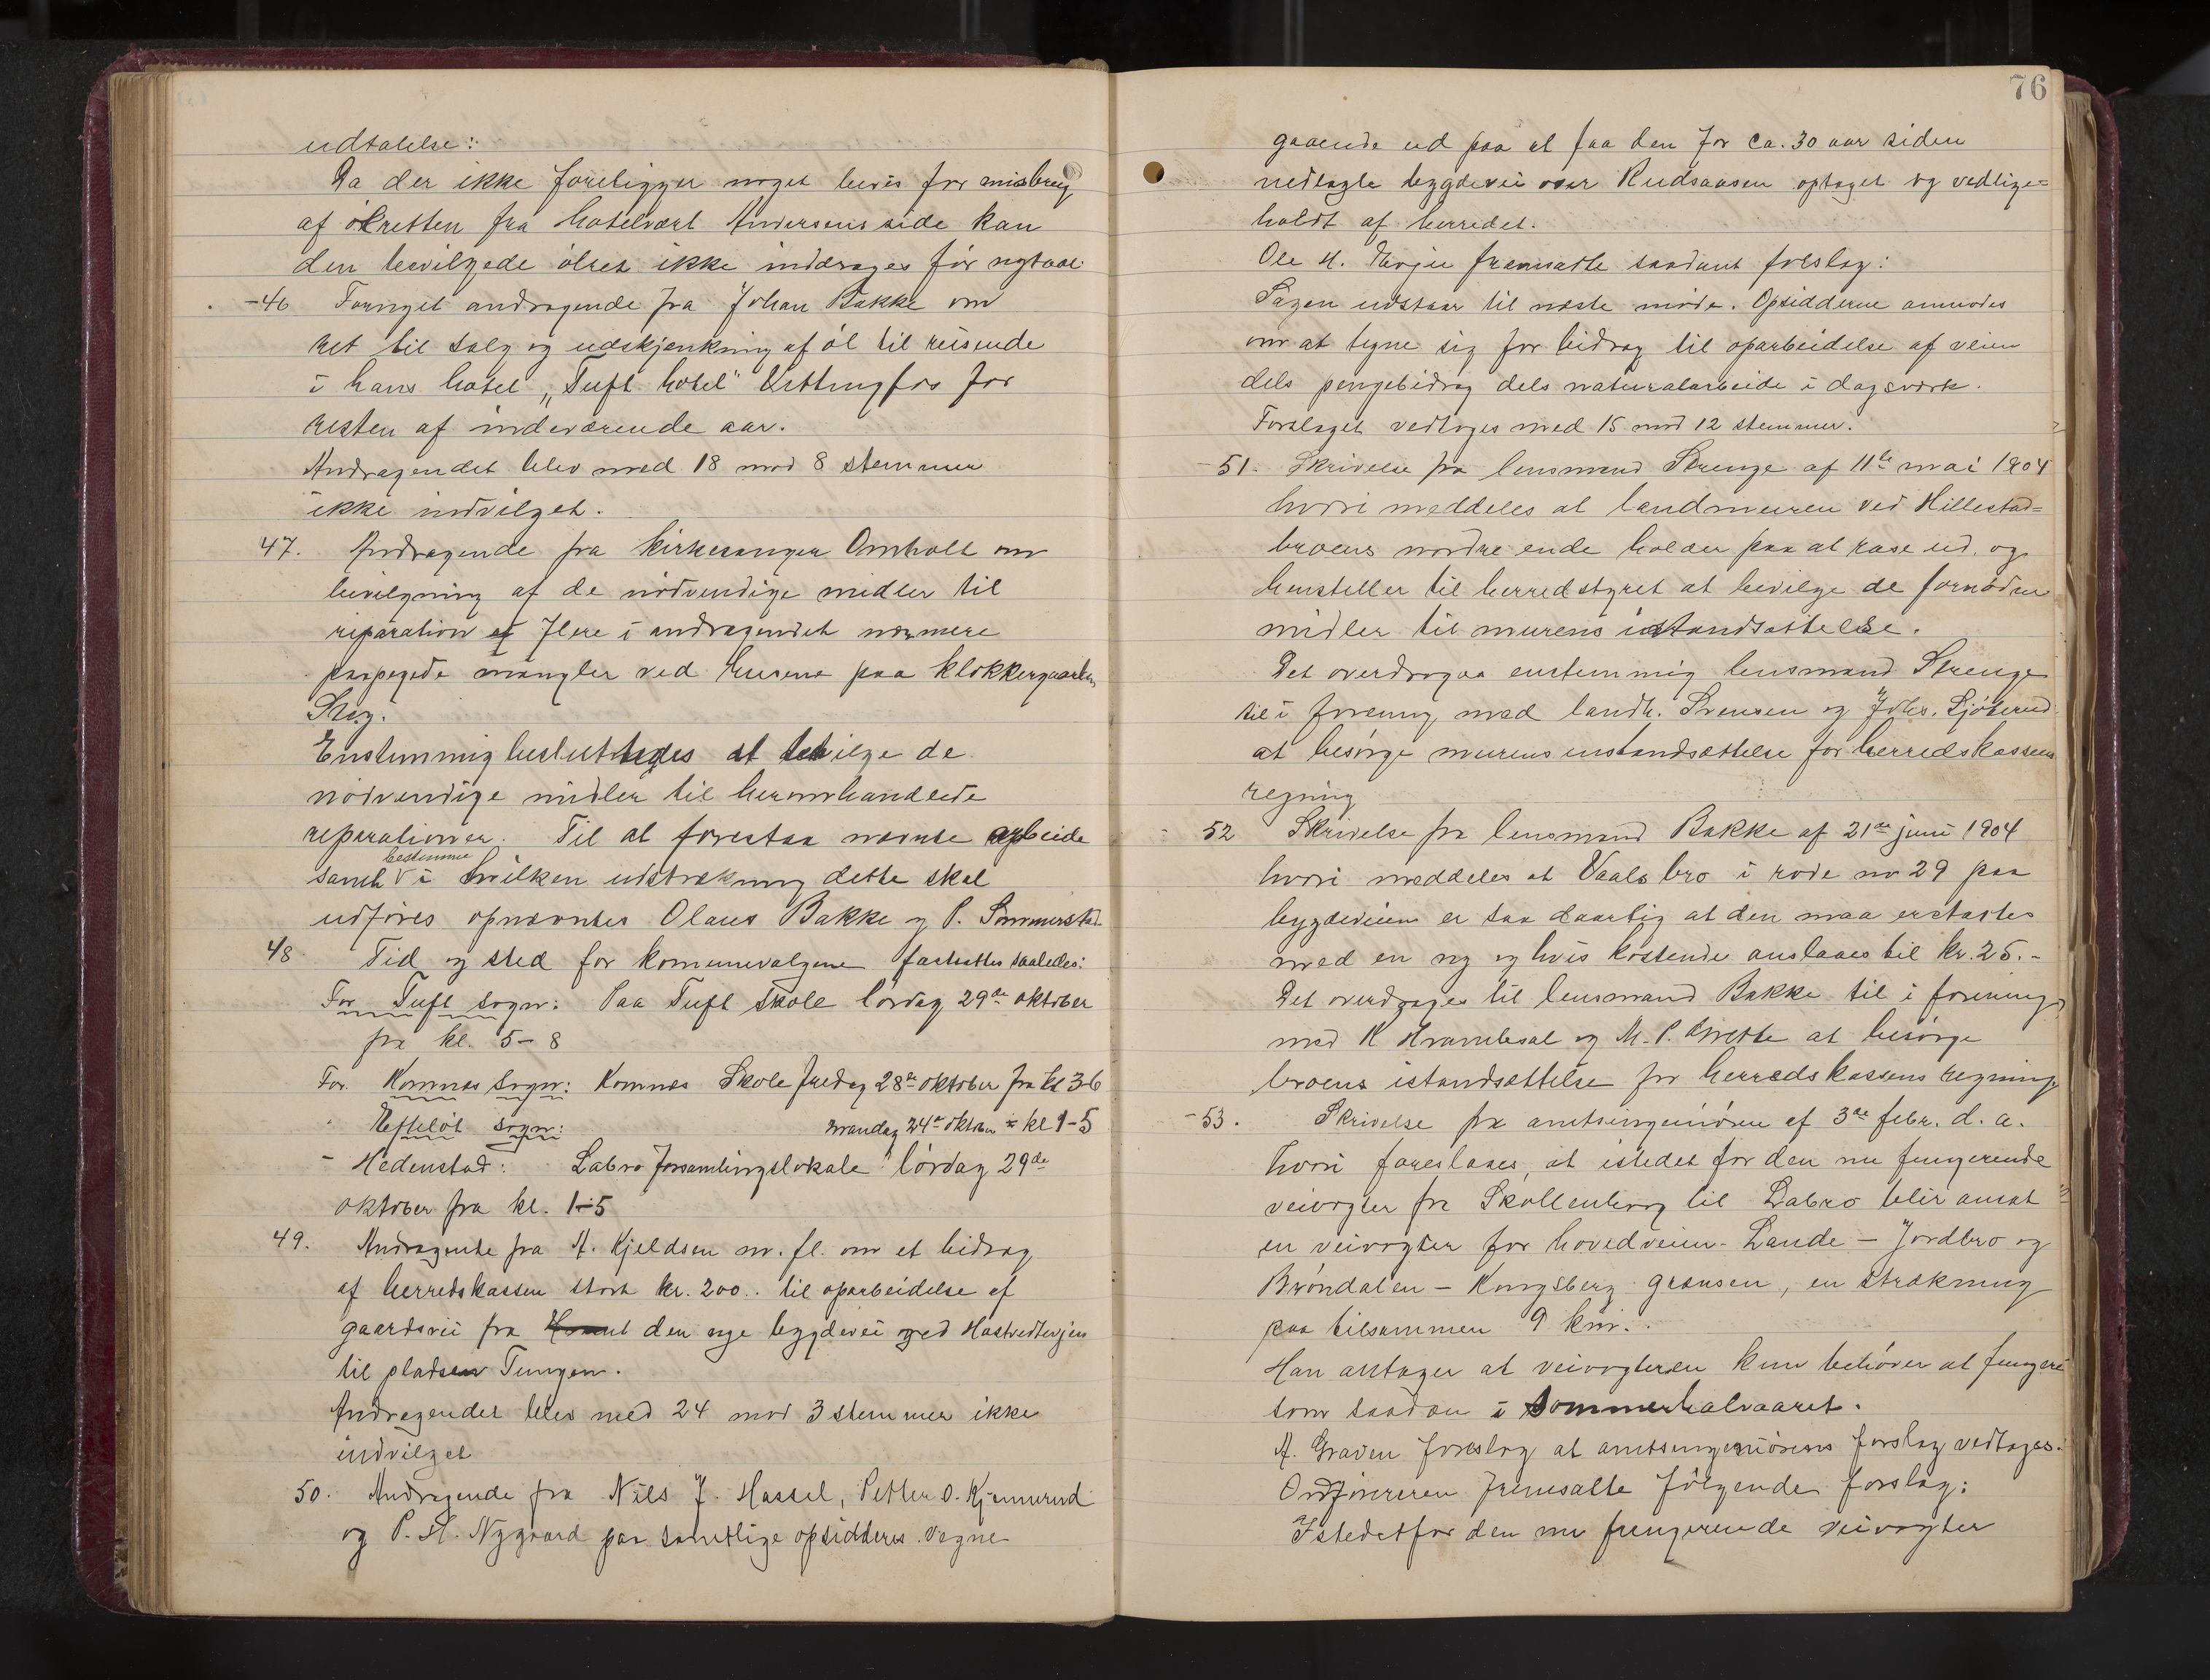 udtalelse:
Da der ikke foreligger noget bevis for misbrug
af ølretten fra hotelvært Andersens side kan
den bevilgede ølret ikke inddrages før nytaar
-46 Fornyet andragende fra Johan Bakke om
ret til salg og udskjenkning af øl til reisende
i hans hotel „Tuft hotel" Vittingfos for
resten af indeværende aar.
Andragendet blev med 18 mod 8 stemmer
ikke indvilget.
47. Andragende fra kirkesanger Omholt om
bevilgning af de nødvendige midler til
reparation af flere i andragendet nærmere
paapegede mangler ved husene paa klokkergaarden
Skeg.
Enstemmig besluttedes at bevilge de
nødvendige midler til heromhandlede
reparationer. Til at forestaa nævnte arbeide
bestemme
samt V i hvilken udstrækning dette skal
udføres opnævntes Olaus Bakke og P. Sommerstad
48 Tid og sted for kommunevalgene fastsættes saaledes:
For Tuft sogn: Paa Tuft skole lørdag 29de oktober
fra kl. 5-8
For Komnes sogn: Komnes Skole fredag 28de oktober fra kl 3-6
" Efteløt sogn: mandag 24de oktober " kl 1-5
- Hedenstad: Labro forsamlingslokale lørdag 29de
oktober fra kl. 1-5
49. Andragende fra A. Kjeldsen m. fl. om et bidrag
af herredskassen stort kr. 200.. til oparbeidelse af
gaardsvei fra den nye bygdevei ved Hostvedtevjen
til pladsen Tungen.
Andragendet blev med 24 mod 3 stemmer ikke
indvilget
50. Andragende fra Nils J. Hassel, Petter O. Kjennerud
og P. H. Nygaard paa samtlige opsidderes vegne
76
gaaende ud paa at faa den for ca. 30 aar siden
nedlagte bygdevei over Rudsaasen optaget og vedlige=
holdt af herredet.
Ole H. Evju fremsatte saadant forslag:
Sagen udstaar til næste møde. Opsidderne anmodes
om at tegne sig for bidrag til oparbeidelse af veien
dels pengebidrag dels naturalarbeide i dagsværk.
Forslaget vedtoges med 15 mod 12 stemmer.
-51. Skrivelse fra lensmand Strenge af 11te mai 1904
hvori meddeles at landmuren ved Hillestad=
broens nordre ende holder paa at rase ud. og
henstiller til herredstyret at bevilge de fornødne
midler til murens istandsættelse.
Det overdrages enstemmig lensmand Strenge
til i forening med landh. Svensen og Johs. Sjøterud
at besørge murens instandsættelse for herredskassens
regning
52 Skrivelse fra lensmand Bakke af 21de juni 1904
hvori meddeles at Vaalo bro i rode no 29 paa
bygdeveien er saa daarlig at den maa erstattes
med en ny og hvis kostende anslaaes til kr. 25.-
Det overdrages til lensmand Bakke til i forening
med K Hrambesal og M. P. Grette at besørge
broens istandsættelse for herredskassens regning
-53. Skrivelse fra amtsingeniøren af 3de febr. d. a.
hvori foreslaaes, at istedet for den nu fungerende
veivogter fra Skollenborg til Labro blir ansat
en veivogter for hovedveien - Lande - Jordbro og
Brøndalen - Kongsberg grænsen, en strækning
paa tilsammen 9 km..
Han antager at veivogteren kun behøver at fungere
som saadan i sommerhalvaaret.
A. Graven foreslog at amtsingeniørens forslag vedtages.
Ordføreren fremsatte følgende forslag:
Istedetfor den nu fungerende veivogter